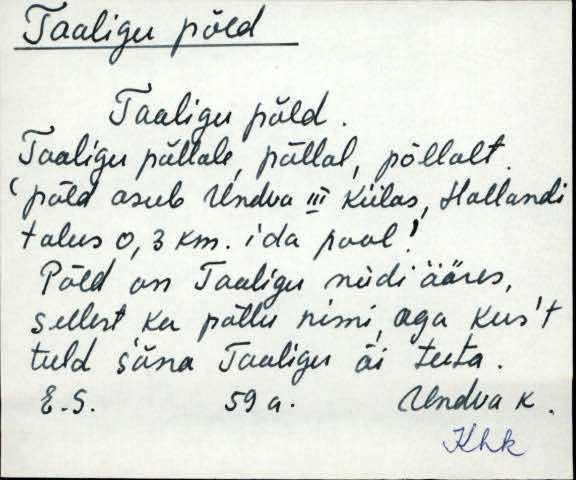 Taaligu põld
Taaligu põld.
Taaligu põllale, põllal, põllalt.
'põld asub Undva III külas, Hollandi
talus 0,3 km. ida pool.'
Põld on Taaligu niidi ääres,
sellest ka põllu nimi, aga kus't
tuld sana Taaligu äi teeta.
E.S. 59 a. Undva k.
Khk